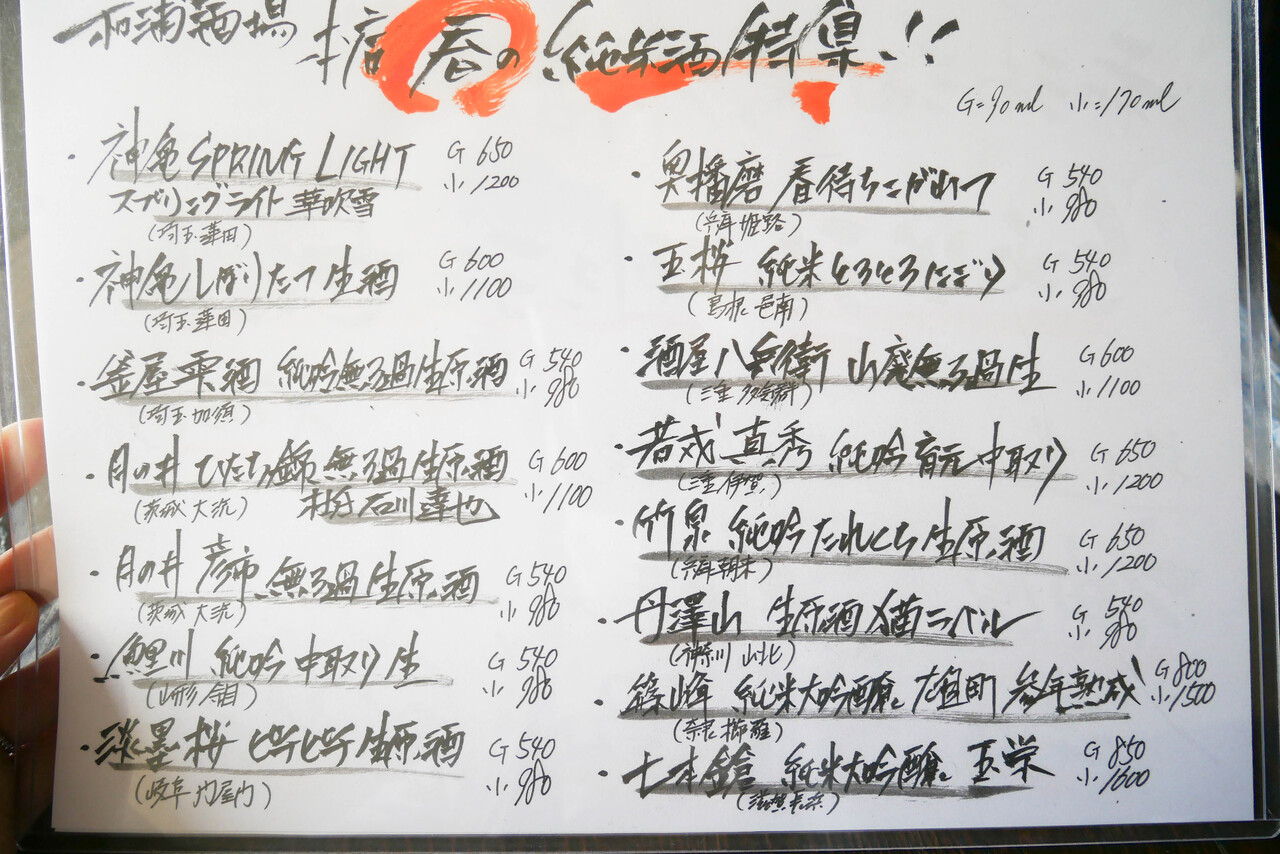 酒場
本店 春の純米酒特集!!
G=90ml 小=170ml
・神亀 SPRING LIGHT G 650
スプリングライト 華吹雪 小 1200
(埼玉 蓮田)
・神亀 しぼりたて 生酒 G 600
(埼玉 蓮田) 小 1100
・釜屋 雫酒 純吟無ろ過生原酒 G 540
(埼玉 加須) 小 980
・月の井 ひたち錦 無ろ過生原酒 G 600
(茨城 大洗) 杜氏 石川達也 小 1100
・月の井 彦市 無ろ過生原酒 G 540
(茨城 大洗) 小 980
・鯉川 純吟 中取り 生 G 540
(山形) 小 980
・淡墨桜 ピチピチ 生原酒 G 540
(岐阜) 小 980
・奥播磨 春待ちこがれて G 540
(兵庫 姫路) 小 980
・玉桜 純米 とろとろにごり G 540
(島根 邑南) 小 980
・酒屋八兵衛 山廃無ろ過生 G 600
(三重 多気郡) 小 1100
・若戎 真秀 純吟 中取り G 650
(三重 伊賀) 小 1200
・竹泉 純吟 たれくち 生原酒 G 650
(兵庫 朝来) 小 1200
・丹澤山 生原酒 猫ラベル G 540
(神奈川 山北) 小 980
・篠峰 純米大吟醸 雄町 参年熟成 G 800
(奈良 櫛羅) 小 1500
・七本鎗 純米大吟醸 玉栄 G 850
(滋賀 長浜) 小 1600